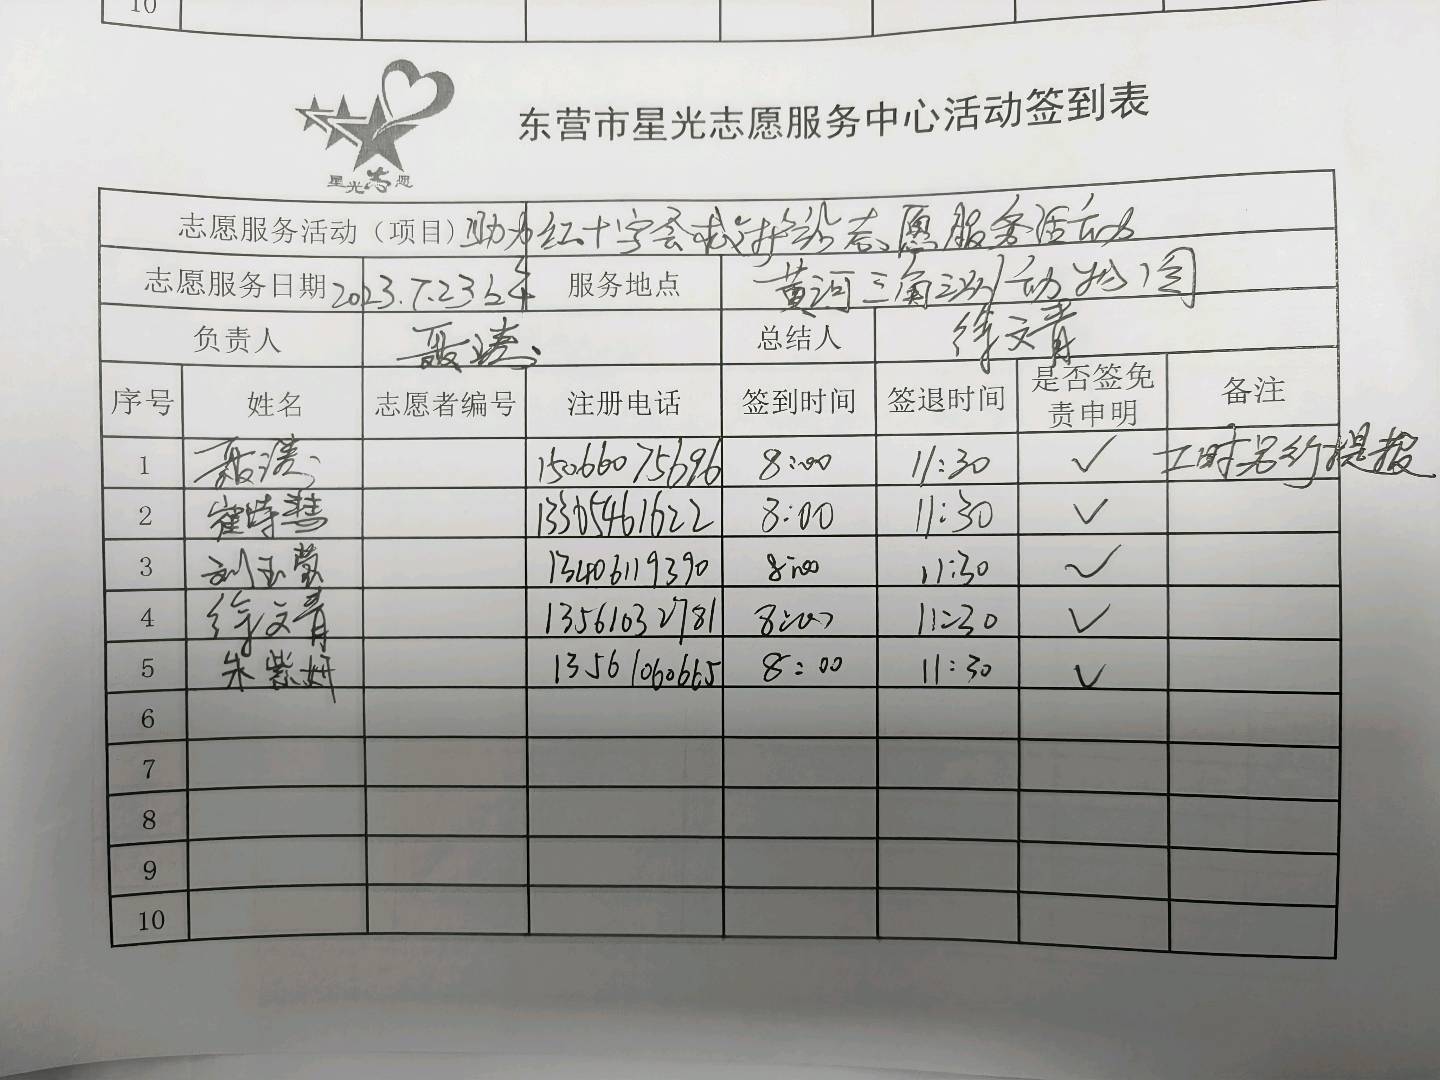 10
星光志愿
东营市星光志愿服务中心活动签到表
志愿服务活动（项目） 助力红十字会救护培训志愿服务活动
志愿服务日期 2023.7.23上午 服务地点 黄河三角洲动物园
负责人 聂涛 总结人 徐文青
序号 姓名 志愿者编号 注册电话 签到时间 签退时间 是否签免责申明 备注
1 聂涛 15066075696 8:00 11:30 ✓ 工时另行提报
2 崔特慧 13305461622 8:00 11:30 ✓
3 刘玉莹 13406119390 8:00 11:30 ✓
4 徐文青 13561032781 8:00 11:30 ✓
5 朱紫妍 13561060665 8:00 11:30 ✓
6
7
8
9
10